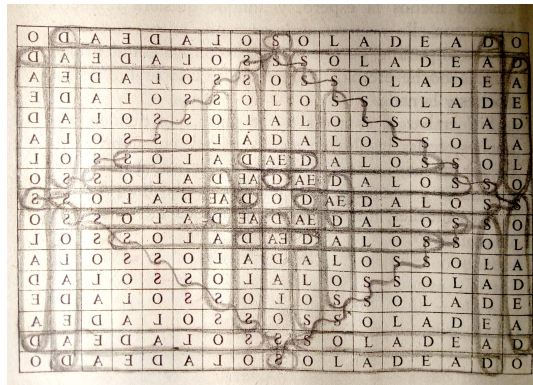 O D A E D A L O S O L A D E A D O
D A E D A L O S S S O L A D E A D
A E D A L O S S O S S O L A D E A
E D A L O S S O L O S S O L A D E
D A L O S S O L A L O S S O L A D
A L O S S O L A D A L O S S O L A
L O S S O L A D AE D A L O S S O L
O S S O L A D AE D AE D A L O S S O
S S O L A D AE D O D AE D A L O S S
O S S O L A D AE D AE D A L O S S O
L O S S O L A D AE D A L O S S O L
A L O S S O L A D A L O S S O L A
D A L O S S O L A L O S S O L A D
E D A L O S S O L O S S O L A D E
A E D A L O S S O S S O L A D E A
D A E D A L O S S S O L A D E A D
O D A E D A L O S O L A D E A D O